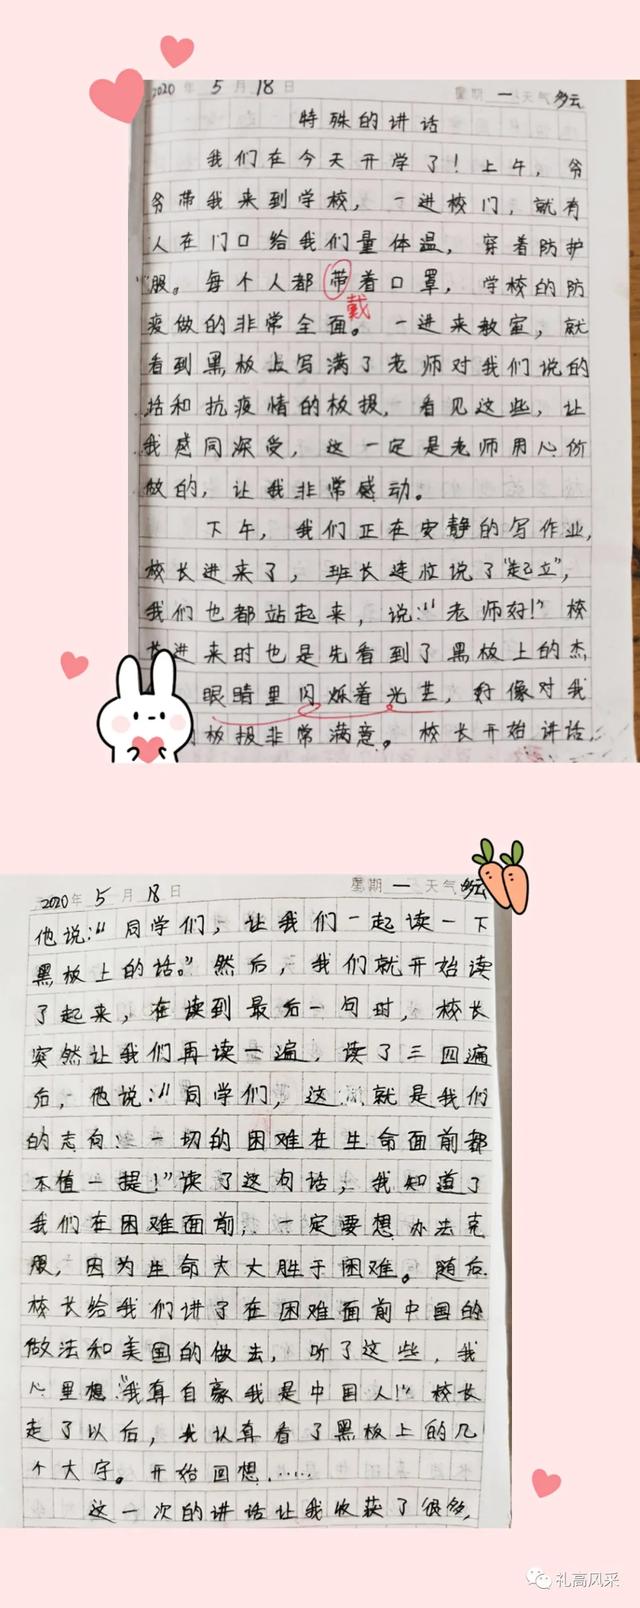 2020年5月18日 星期一天气多云
特殊的讲话
我们在今天开学了！上午，爷
爷带我来到学校，一进校门，就有
人在门口给我们量体温，穿着防护
服。每个人都带着口罩，学校的防
戴
疫做的非常全面。一进来教室，就
看到黑板上写满了老师对我们说的
话和抗疫情的板报，看见这些，让
我感同深受，这一定是老师用心价
做的，让我非常感动。
下午，我们正在安静的写作业，
校长进来了，班长连忙说了“起立”，
我们也都站起来，说：“老师好！”校
长进来时也是先看到了黑板上的杰
眼睛里闪烁着光芒，好像对我
板报非常满意。校长开始讲话，
2020年5月18日 星期一天气多云
他说：“同学们，让我们一起读一下
黑板上的话。”然后，我们就开始读
了起来，在读到最后一句时，校长
突然让我们再读一遍，读了三四遍
后，他说：“同学们，这就是我们
的志向：一切的困难在生命面前都
不值一提！”读了这句话，我知道了
我们在困难面前，一定要想办法克
服，因为生命大大胜于困难。随后
校长给我们讲了在困难面前中国的
做法和美国的做法，听了这些，我
心里想“我真自豪我是中国人！”校长
走了以后，我认真看了黑板上的几
个大字。开始回想……
这一次的讲话让我收获了很多，
礼高风采